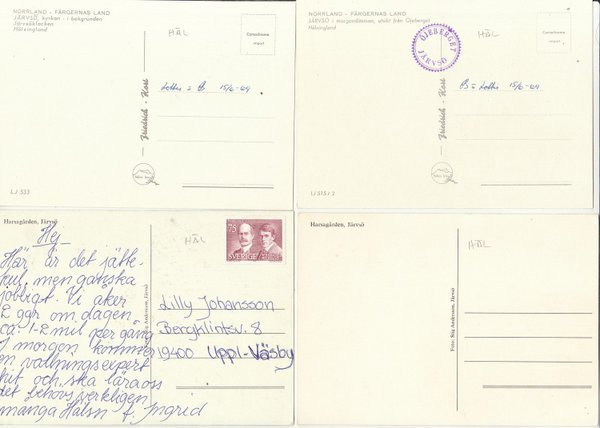 NORRLAND - FÄRGERNAS LAND
JÄRVSÖ, kyrkan - i bakgrunden
Järvsöklacken
Hälsingland
HÄL
Cornelitone
import
15/6-69
Friedrich - Kort
LJ 533
NORRLAND - FÄRGERNAS LAND
JÄRVSÖ i morgondimman, utsikt från Öjeberget
Hälsingland
ÖJEBERGET
JÄRVSÖ
HÄL
import
15/6-69
Friedrich - Kort
Harsagården, Järvsö
HÄL
75
SVERIGE
Hej
Här är det jätte-
kul, men ganska
jobbigt. Vi åker
2 ggr om dagen
ca: 1-2 mil per gång
I morgon kommer
en vallningsexpert
hit och ska lära oss
det behövs verkligen
många Hälsn fr Ingrid
Foto: Stig Andersson, Järvsö
Lilly Johansson
Bergklintsv. 8
19400 Uppl-Väsby
Harsagården, Järvsö
HÄL
Foto: Stig Andersson, Järvsö